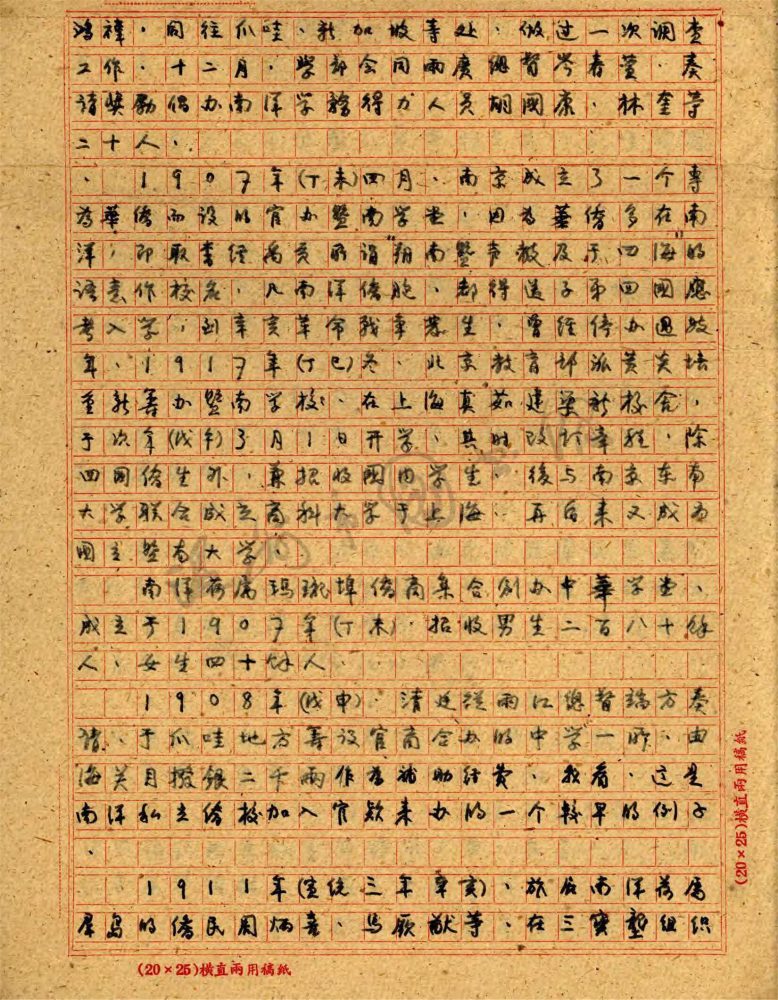 鸿禕，同往爪哇、新加坡等处，做过一次调查
工作。十二月，学部会同两廣總督岑春萱，奏
请獎勵倡办南洋学務得力人員胡國廉、林奎等
二十人。
1907年(丁未)四月，南京成立了一个專
為華僑而设的官办暨南学堂，因為華僑多在南
洋，即取書经禹贡所謂"朔南暨声教及于四海"的
语意作校名，凡南洋僑胞，都得送子弟回國應
考入学，到辛亥革命战事發生，曾经停办过数
年。1917年(丁巳)冬，北京教育部派黄炎培
重新筹办暨南学校，在上海真茹建築新校舍，
于次年(戊午)3月1日开学，其时改訂章程，除
回國僑生外，兼招收國内学生，後与南京东南
大学联合成立商科大学于上海，再后来又成為
國立暨南大学。
南洋荷属瑪瓏埠僑商集合创办中華学堂，
成立于1907年(丁未)，招收男生二百八十餘
人，女生四十餘人。
1908年(戊申)，清廷從两江總督端方奏
请，于爪哇地方筹设官商合办的中学一所，由
海关月撥銀二千两作為補助经费，我看，这是
南洋私立僑校加入官欵来办的一个較早的例子
。
1911年(宣统三年辛亥)，旅居南洋荷属
群島的僑民周炳喜、馬厥猷等，在三寶壟组织
(20×25)橫直兩用稿紙
(20×25)橫直兩用稿紙